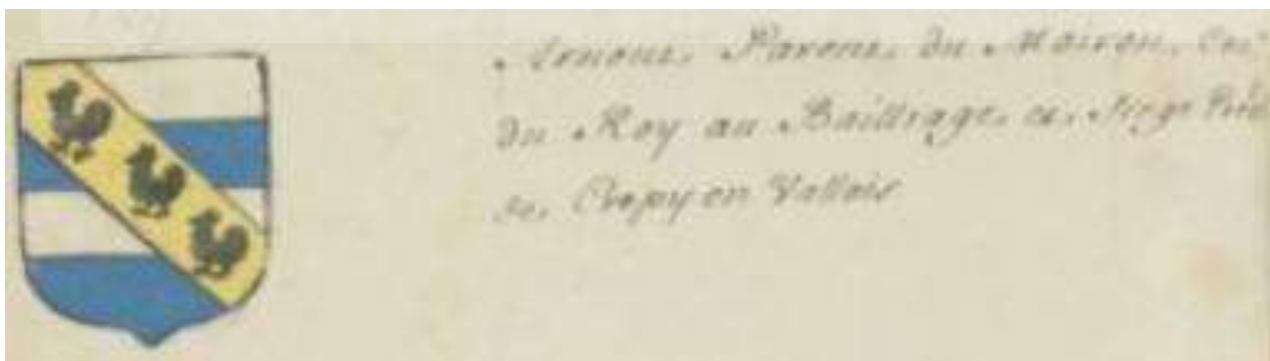 Arnoul Parent du Moiron, con.
du Roy au Bailliage et Siege Presi
de Crepy en Vallois